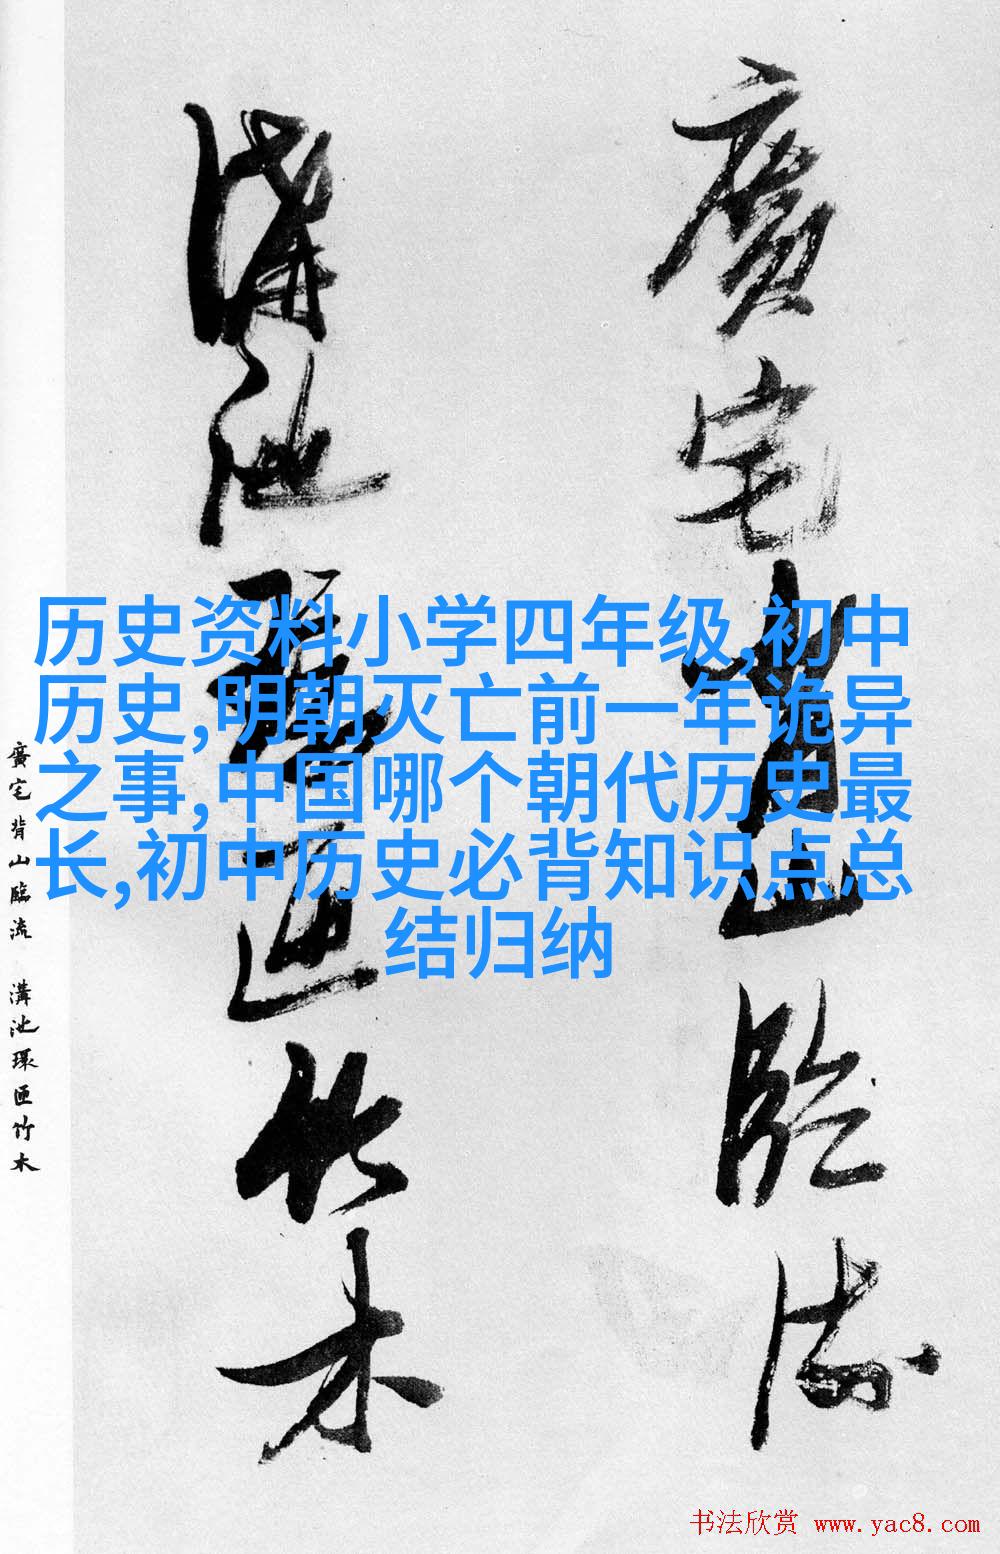 廣宅背山臨流
溝池環匝竹木
历史资料小学四年级,初中
历史,明朝灭亡前一年诡异
之事,中国哪个朝代历史最
长,初中历史必背知识点总
结归纳
廣宅背山臨流 溝池環匝竹木
书法欣赏 www.yac8.com